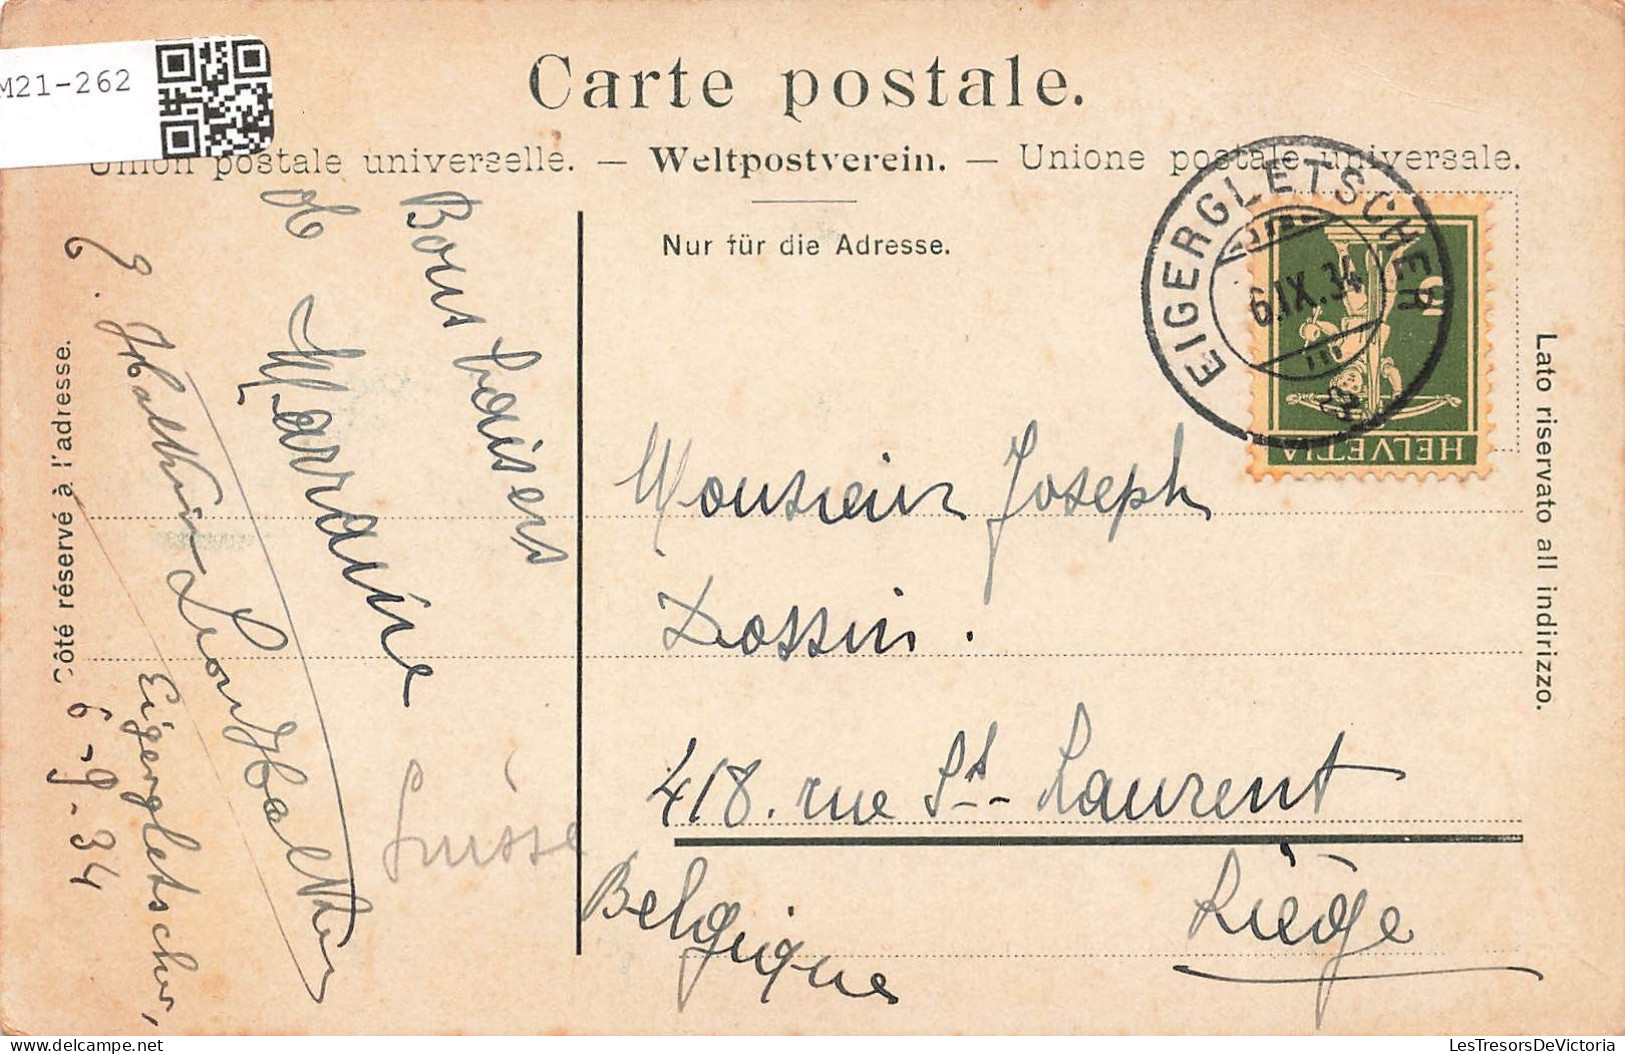 M21-262
Carte postale.
Union postale universelle. — Weltpostverein. — Unione postale universale.
Nur für die Adresse.
Côté réservé à l'adresse.
Lato riservato all indirizzo.
EIGERGLETSCHER
6.IX.34
HELVETIA
5
Bons baisers
de Marraine
Eigergletscher,
6-9-34
Suisse
Monsieur Joseph
Dossin.
418. rue St-Laurent
Liège
Belgique
LesTresorsDeVictoria